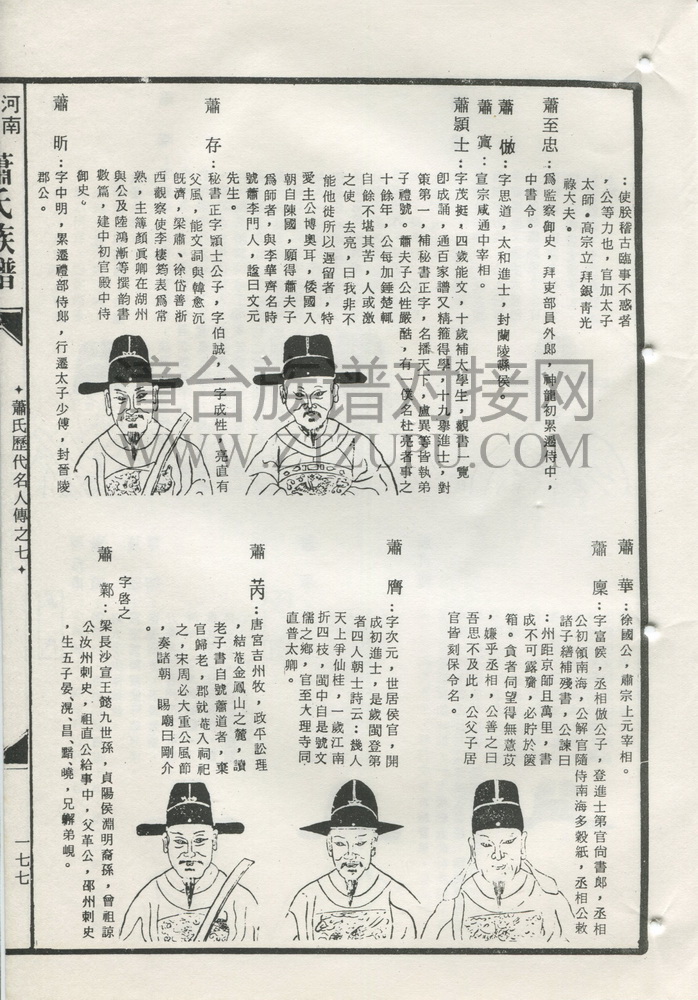 ：使朕稽古臨事不惑者
，公等力也，官加太子
太師。高宗立拜銀青光
祿大夫。
蕭至忠：爲監察御史，拜吏部員外郎，神龍初累遷侍中，
中書令。
蕭　倣：字思道，太和進士，封蘭陵縣侯。
蕭　寘：宣宗咸通中宰相。
蕭穎士：字茂挺，四歲能文，十歲補太學生，觀書一覽
即成誦，通百家譜又精籀得學，十九舉進士，對
策第一，補秘書正字，名播天下，盧異等皆執弟
子禮號。蕭夫子公性嚴酷，有一僕名杜亮者事之
十餘年，公每加錘楚輒
自餘不堪其苦，人或激
之使　去亮，曰我非不
能他徙所以遲留者，特
愛主公博奧耳，倭國入
朝自陳國，願得蕭夫子
爲師者，與李華齊名時
號蕭李門人，諡曰文元
先生。
蕭　存：秘書正字穎士公子，字伯誠，一字成性，亮直有
父風，能文詞與韓愈沉
旣濟，梁肅、徐岱善浙
西觀察使李棲筠表爲常
熟，主簿顏眞卿在湖州
與公及陸鴻漸等撰韵書
數篇，建中初官殿中侍
御史。
蕭　昕：字中明，累遷禮部侍郎，行遷太子少傅，封晉陵
郡公。
蕭　華：徐國公，肅宗上元宰相。
蕭　廩：字富侯，丞相倣公子，登進士第官尚書郎，丞相
公初領南海，公解官隨侍南海多穀紙，丞相公敕
諸子繕補殘書，公諫曰
：州距京師且萬里，書
成不可露齎，必貯於篋
箱。貪者伺望得無薏苡
，嫌乎丞相，公善之曰
吾思不及此，公父子居
官皆刻保令名。
蕭　膺：字次元，世居侯官，開
成初進士，是歲閩登第
者四人朝士詩云：幾人
天上爭仙桂，一歲江南
折四枝，閩中自是號文
儒之鄉，官至大理寺同
直普太卿。
蕭　芮：唐宮吉州牧，政平訟理
，結菴金鳳山之麓，讀
老子書自號蕭道者，棄
官歸老，郡就菴入祠祀
之，宋周必大重公風節
，奏諸朝　賜廟曰剛介
。
蕭　鄴：梁長沙宣王懿九世孫，貞陽侯淵明裔孫，曾祖諒
字啓之
公汝州刺史，祖直公給事中，父革公，邵州刺史
，生五子晏、滉、昌、黯、曉，兄鄰弟峴。
河南　蕭氏族譜
蕭氏歷代名人傳之七
一七七
童台族谱对接网
WWW.ZTZUPU.COM